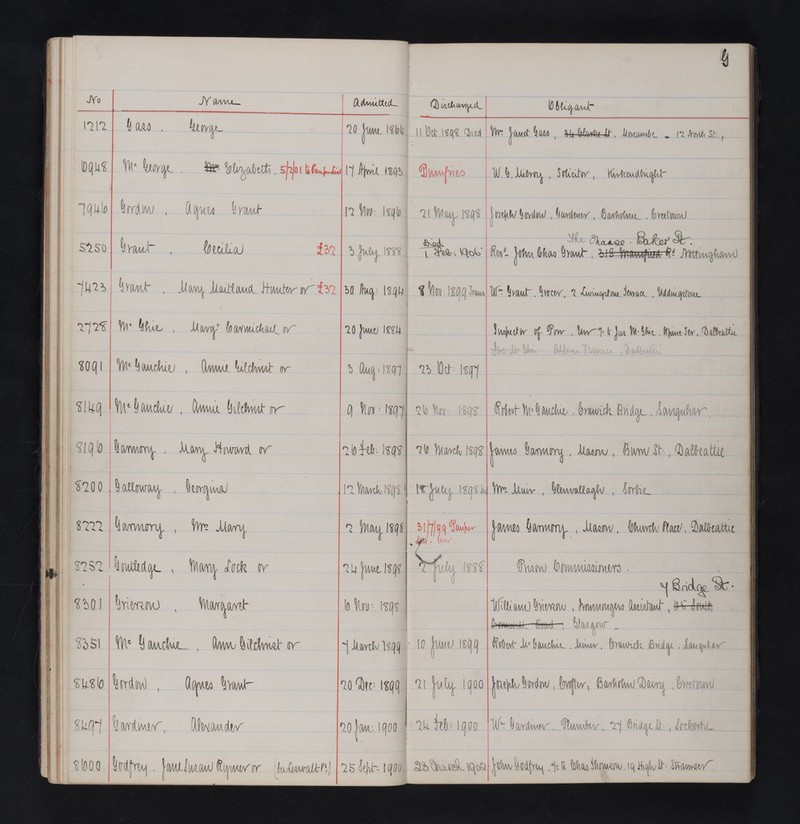 G
No Name Admitted Discharged Obligant
1212 Gass, George 20 June 1866 11 Oct 1898 Died Mrs Janet Gass, 12 North St.,
6948 Mc George, Elizabeth. 5/2/01 17 April 1893 Dumfries W. G. Milroy, Solicitor, Kirkcudbright
7946 Gordon, Agnes Grant 12 Nov: 1896 21 May 1898 Joseph Gordon, Gardener, Barholm, Creetown
The Manse Baker St.
5250 Grant, Cecilia £32 3 July 1888 Died 1 Feb: 1906 Revd John Chas Grant, Rd Nottingham
7423 Grant, Mary Maitland Hunter or £32 30 Aug: 1894 8 Nov: 1899 Wm Grant, Grocer, 2 Livingstone Terrace, Uddingstone
2728 Mc Ghie, Margt Carmichael or 20 June 1884 Inspector of Poor, Jas Mc Ghie Alpine Ter. Dalbeattie
8091 Mc Gauchie, Annie Gilchrist or 3 Aug: 1897 23 Oct: 1897
8149 Mc Gauchie, Annie Gilchrist or 9 Nov: 1897 26 Nov: 1898 Robert McGauchie, Crawick Bridge, Sanquhar
8196 Garmory, Mary Howard or 26 Feb: 1898 26 March 1898 James Garmory, Mason, Burn St:, Dalbeattie
8200 Galloway, Georgina 12 March 1898 18 July 1898 Mrs Muir, Glenvallagh, Sorbie
8222 Garmory, Mrs Mary 2 May 1898 31/7/99 Pauper James Garmory, Mason, Church Place, Dalbeattie
8252 Goulledge, Mary Lock or 24 June 1898 2 July 1888 Prison Commissioners.
7 Bridge St.
8301 Grierson, Margaret 6 Nov: 1898 William Grierson, Ironmongers Assistant, 46 South
Road, Glasgow
8351 Mc Gauchie, Ann Gilchrist or 7 March 1899 10 June 1899 Robert McGauchie, Miner, Crawick Bridge, Sanquhar
8486 Gordon, Agnes Grant 20 Dec: 1899 21 July 1900 Joseph Gordon, Crofter, Barholm Dairy, Creetown
8497 Gardiner, Alexander 20 Jan: 1900 24 Feb: 1900 Wm Gardiner, Plumber, 27 Bridge St., Lockerbie
8600 Godfrey, Jane Susan Rymer or (Leswalt P.) 25 Sept. 1900 23 March 1902 John Godfrey, c/o Chas Thomson, 19 High St: Stranraer